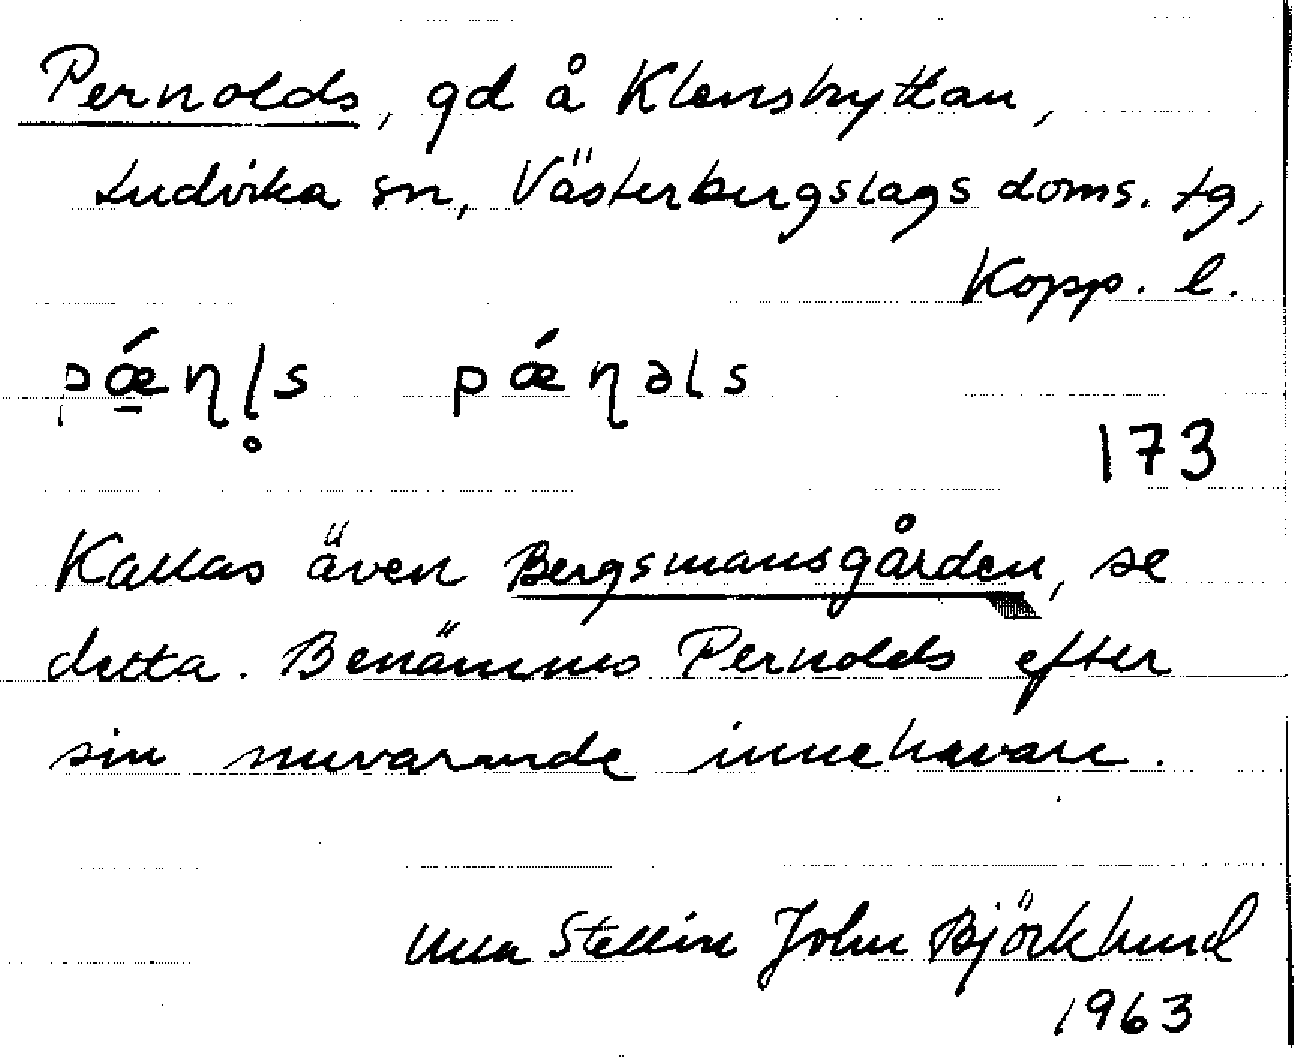 Pernolds, gd å Klenshyttan,
Ludvika sn, Västerbergslags doms. tg,
Kopp. l.
pǽ̠ɳl̥s pǽɳəls
173
Kallas även Bergsmansgården, se
detta. Benämnes Pernolds efter
sin nuvarande innehavare.
Ulla Stellin John Björklund
1963